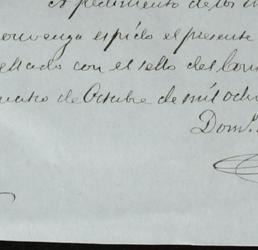 A pedimento de los in
convenga espido el presente
sellado con el sello del Con
cuatro de Octubre de mil och
Dom.